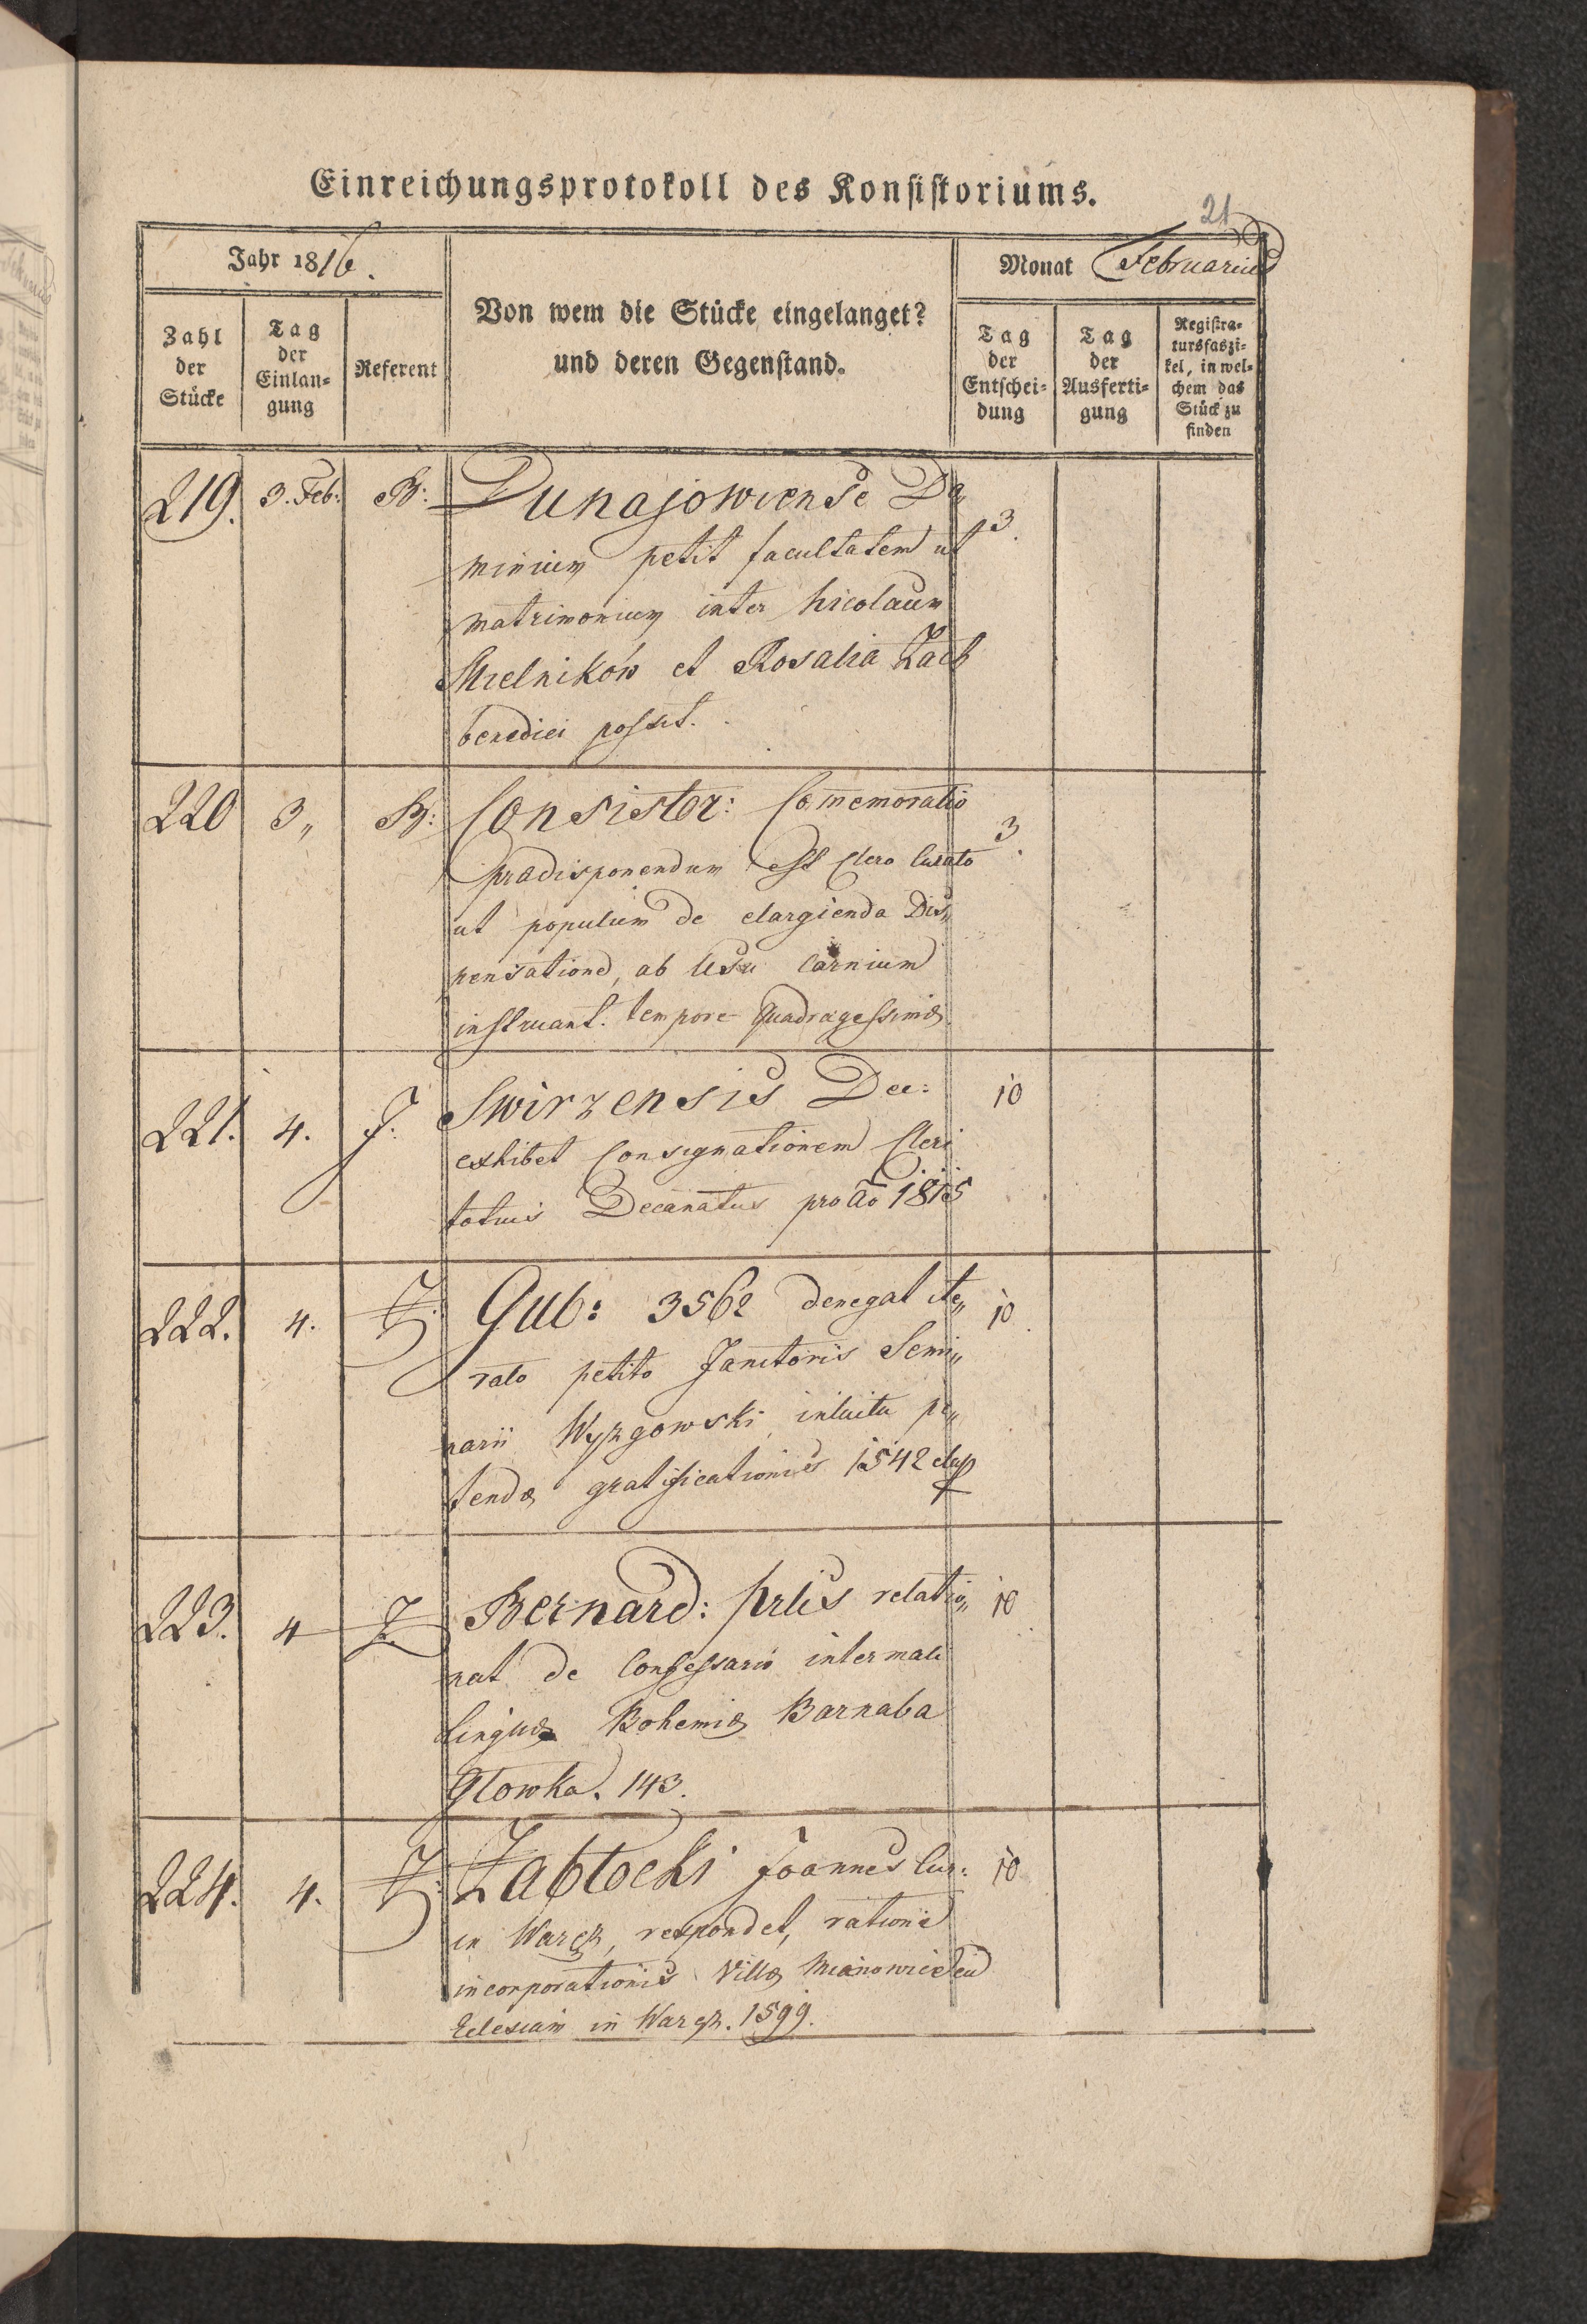 Einreichungsprotokoll des Konsistoriums.
21
Jahr 1816.
Monat Februarius
Zahl der Stücke
Tag der Einlan-gung
Referent
Von wem die Stücke eingelanget?
und deren Gegenstand.
Tag der Entschei-dung
Tag der Ausferti-gung
Registra-tursfaszi-kel, in wel-chem das Stück zu finden
219. 3. Feb: B: Dunajowiense Do 3.
minium petit facultatem ut
matrimonium inter Nicolaum
Mielnikow et Rosalia Zach
benedici possit.
220 3„ B: Consistor: Comemoratio 3.
prædisponendum est Clero Curato
ut populum de elargienda Dis„
pensatione, ab Usu Carnium
instruant. tempore Quadragessimæ.
221. 4. J. Swirzensis Dec: 10
exhibet Consignationem Cleri
totius Decanatus pro Ao 1815
222. 4. Z. Gub: 3562 denegat ite„ 10
rato petito Janitoris Semi„
narii Wyzgowski intuitu pe„
tendæ gratificationis 1542
223. 4 Z. Bernard: prlis relatio„ 10
nat de Confessario intermali
linguæ Bohemiæ Barnaba
Glowka. 143.
224. 4. Z. Zabłocki Joannes Cur: 10
in Waręz, respondet, ratione
incorporationis Villæ
Eclesiam in Waręz. 1599.